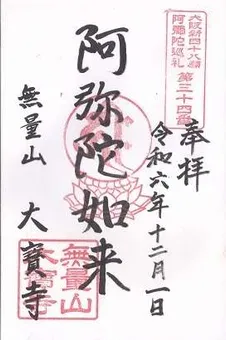 大阪新四十八願
阿彌陀巡礼 第三十四番
奉拝
令和六年十二月一日
阿弥陀如来
無量山 大寶寺
無量山